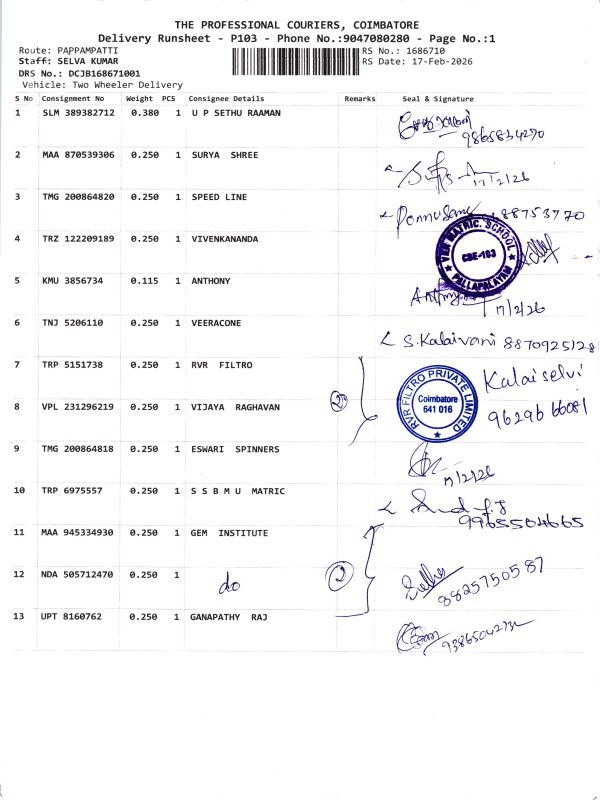 THE PROFESSIONAL COURIERS, COIMBATORE
Delivery Runsheet - P103 - Phone No.:9047080280 - Page No.:1
Route: PAPPAMPATTI
RS No.: 1686710
Staff: SELVA KUMAR
RS Date: 17-Feb-2026
DRS No.: DCJB168671001
Vehicle: Two Wheeler Delivery
S No Consignment No Weight PCS Consignee Details Remarks Seal & Signature
1 SLM 389382712 0.380 1 U P SETHU RAAMAN
9865834270
2 MAA 870539306 0.250 1 SURYA SHREE
17/2/26
3 TMG 200864820 0.250 1 SPEED LINE
88753770
4 TRZ 122209189 0.250 1 VIVENKANANDA
MATRIC. SCHOOL
CBE-103
PALLAPALAYAM
5 KMU 3856734 0.115 1 ANTHONY
Anthony 17/2/26
6 TNJ 5206110 0.250 1 VEERACONE
S. Kalaivani 8870925128
7 TRP 5151738 0.250 1 RVR FILTRO
2
RVR FILTRO PRIVATE LIMITED
Coimbatore
641 016
Kalaiselvi
9629666081
8 VPL 231296219 0.250 1 VIJAYA RAGHAVAN
9 TMG 200864818 0.250 1 ESWARI SPINNERS
17/2/26
10 TRP 6975557 0.250 1 S S B M U MATRIC
9965504665
11 MAA 945334930 0.250 1 GEM INSTITUTE
12 NDA 505712470 0.250 1 do 2
8825750587
13 UPT 8160762 0.250 1 GANAPATHY RAJ